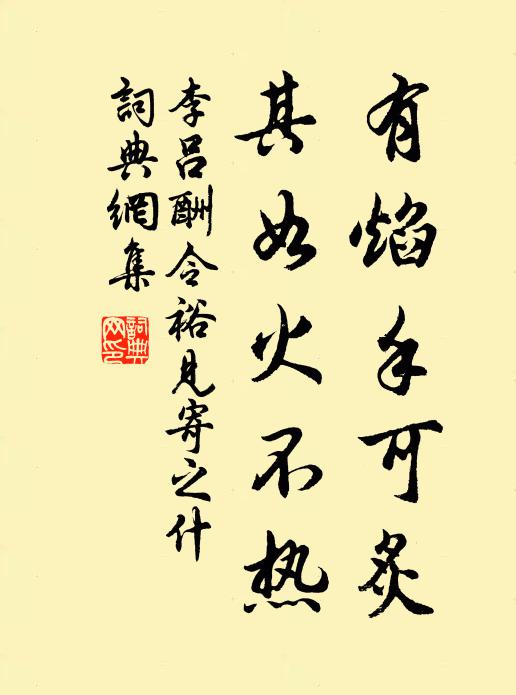 有焰手可炙
其如火不热
李吕酬令裕見寄之什
詞典網集
詞典網印